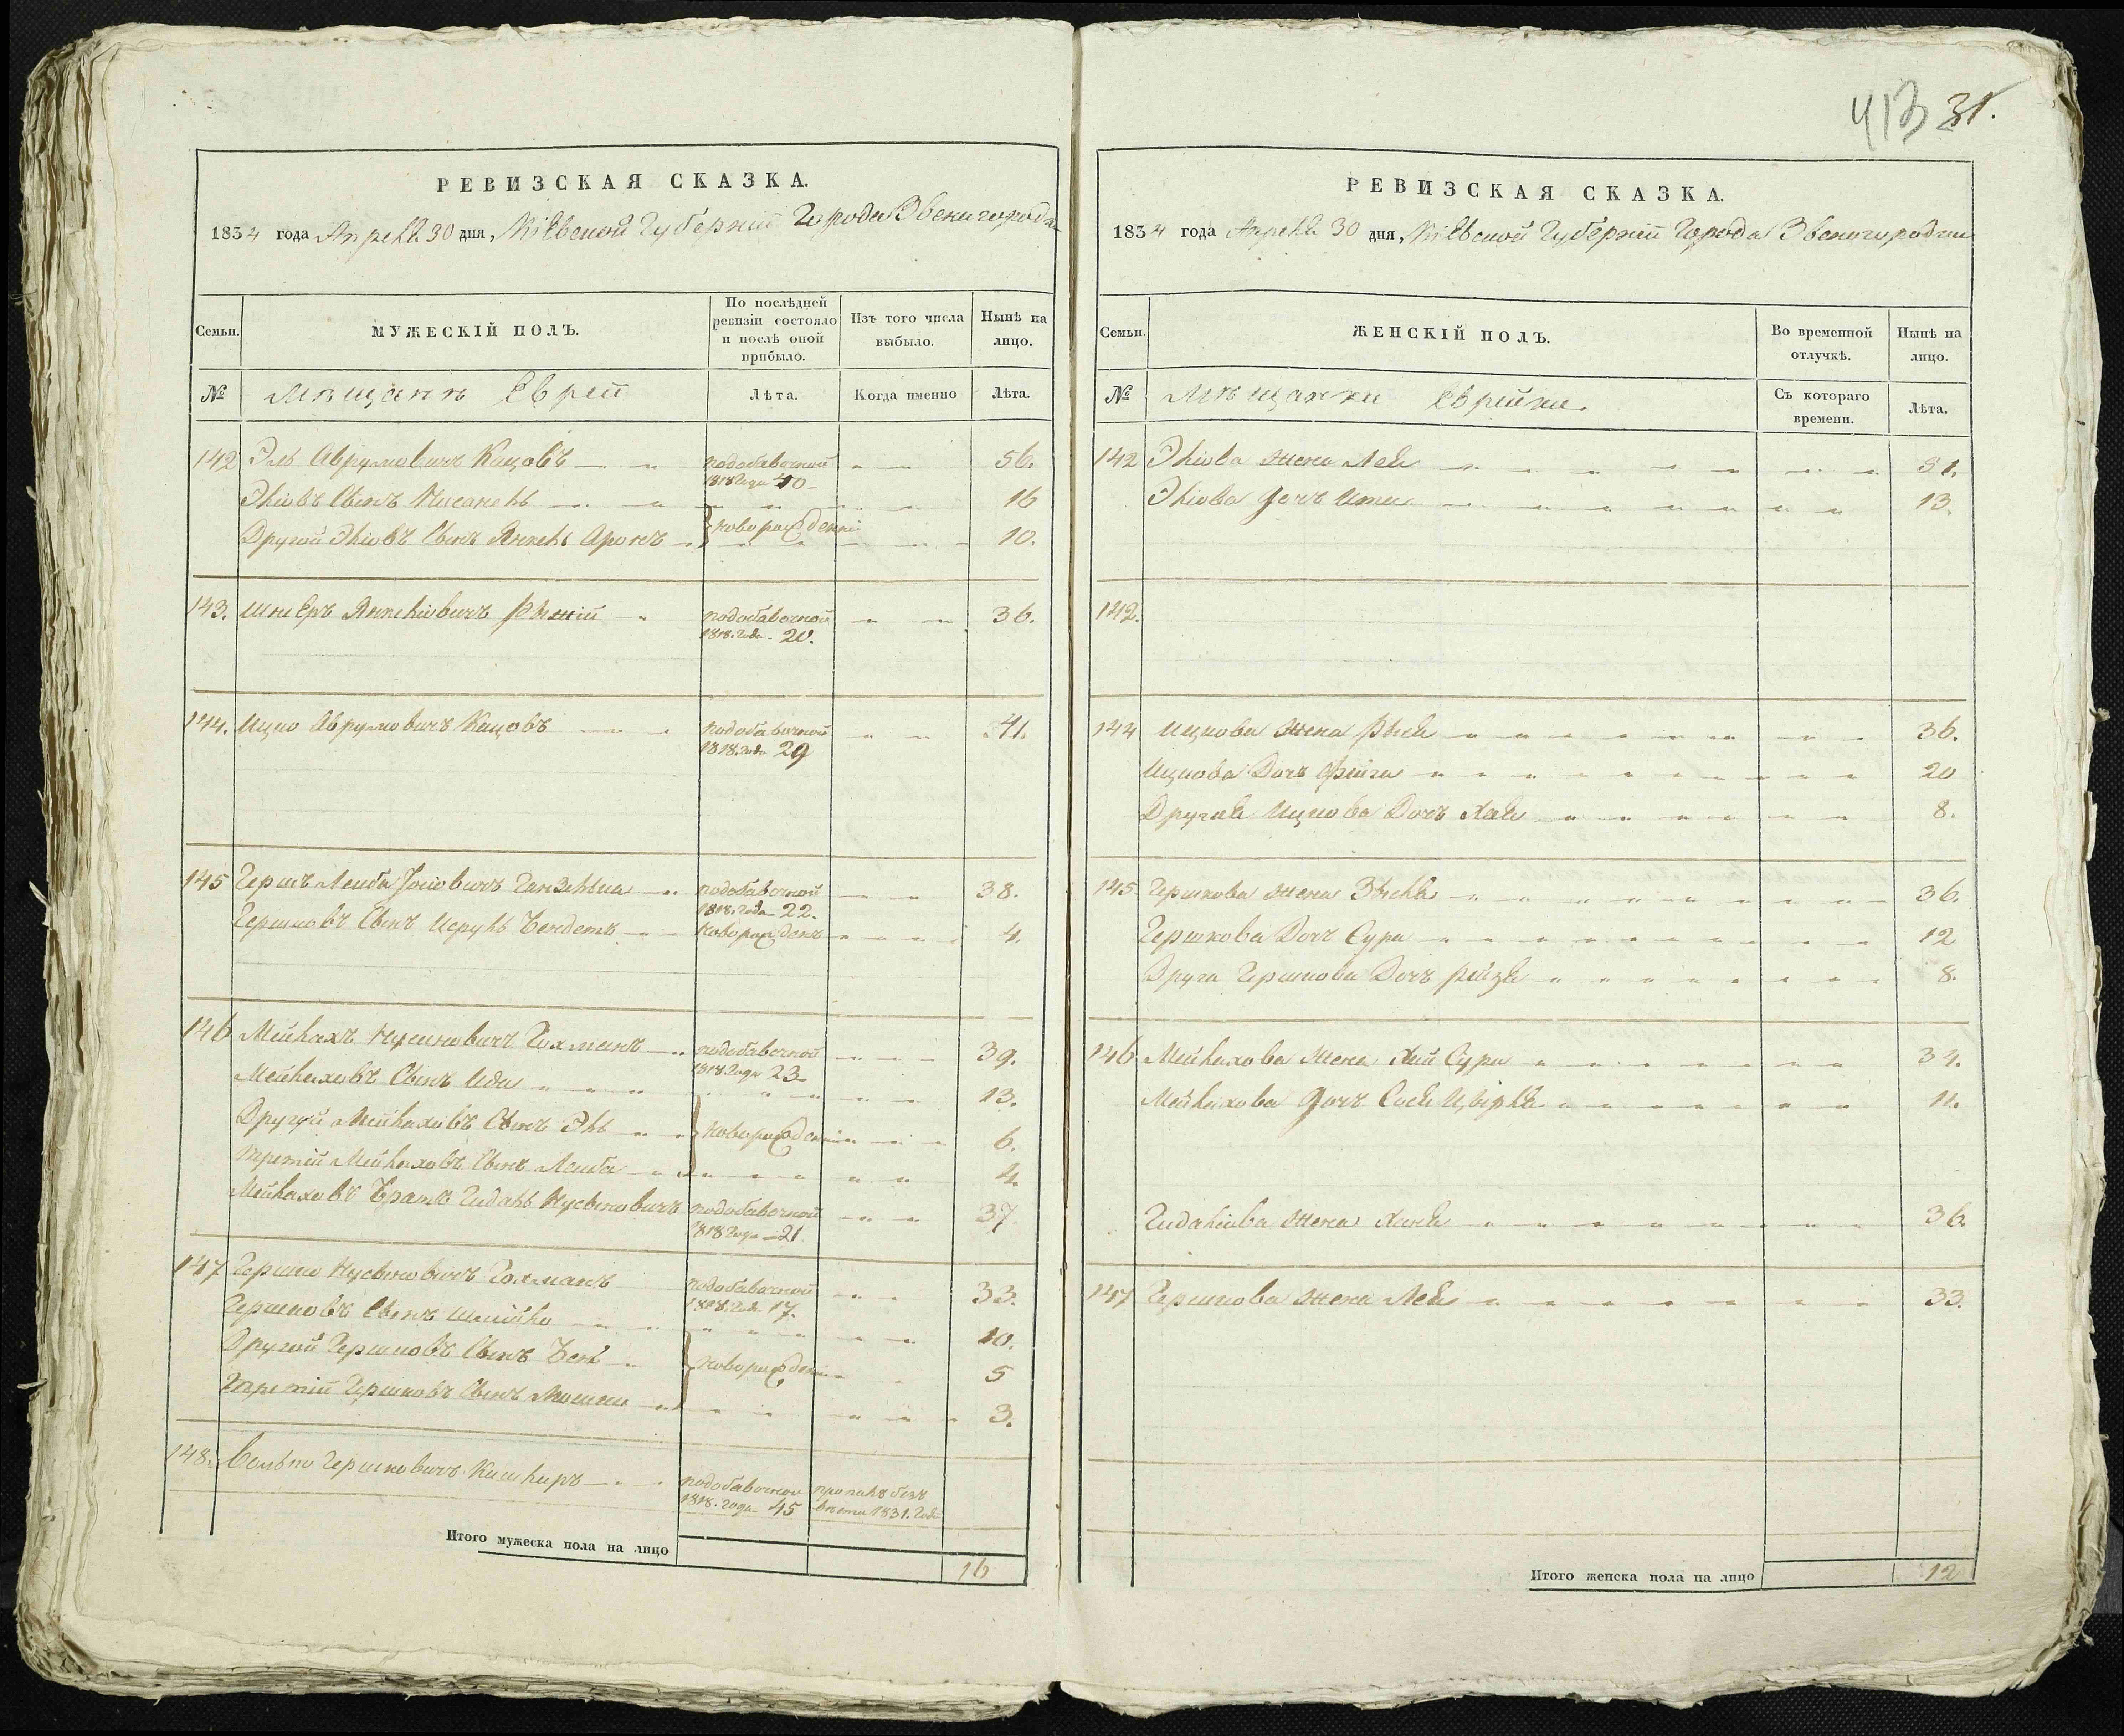 413 31.
РЕВИЗСКАЯ СКАЗКА.
1834 года Апреля 30 дня, Кіевской Губерніи Города Звенигородки
Семьи.
МУЖЕСКІЙ ПОЛЪ.
По послѣдней ревизіи состояло и послѣ оной прибыло.
Изъ того числа выбыло.
Нынѣ на лицо.
№
Мѣщанѣ Евреи
Лѣта.
Когда именно
Лѣта.
142 Эль Аврумовичъ Кацовъ подобавочной 1818 Года 40 56.
Эліовъ Сынъ Нисанель 16
Другой Эліовъ Сынъ Янкель Аронъ новорожденніи 10.
143. Шнеръ Янкеліовичъ Рыжій подобавочной 1818. Года 20. 36.
144. Ицко Аврумовичъ Кацовъ подобавочной 1818. года 29 41.
145 Гершъ Лейба Іосіовичъ подобавочной 1818. года 22. 38.
Гершковъ Сынъ Исруль Бендетъ новорожденъ 4.
146 Мейлахъ Нусиновичъ Гохманъ подобавочной 1818 Года 23 39.
Мейлаховъ Сынъ Ида 13.
Другій Мейлаховъ Сынъ Эль новорожденніи 6.
Третій Мейлаховъ Сынъ Лейба 4.
Мейлаховъ Братъ Гидаль Нусыновичъ подобавочной 1818 Года 21. 37
147 Гершко Нусыновичъ Гохманъ подобавочной 1818. Года 17. 33.
Гершковъ Сынъ Шмійло 10.
Другой Гершковъ Сынъ новорожденніи 5
Третій Гершковъ Сынъ Мошко 3.
148. Волько Гершковичъ Кишлиръ подобавочной 1818. года 45 пропалъ безъ вѣсти 1831. Года
Итого мужеска пола на лицо 16
РЕВИЗСКАЯ СКАЗКА.
1834 года Апреля 30 дня, Кіевской Губерніи Города Звенигородки
Семьи.
ЖЕНСКІЙ ПОЛЪ.
Во временной отлучкѣ.
Нынѣ на лицо.
№
Мѣщанки Еврейки.
Съ котораго времени.
Лѣта.
142 Эліова жена Лея 51.
Эліова дочъ Ита 13.
142.
144 Ицкова жена Рыся 36.
Ицкова Дочъ Фейга 20
Другая Ицкова Дочъ Хая 8.
145 Гершкова жена Зысля 36.
Гершкова Дочъ Сура 12
Друга Гершкова Дочъ Рейзя 8.
146 Мейлахова жена Хая Сура 34.
Мейлахова дочъ Сося Цвірля 11.
Гидаліова жена Ханя 36.
147 Гершкова жена Лея 33.
Итого женска пола на лицо 12